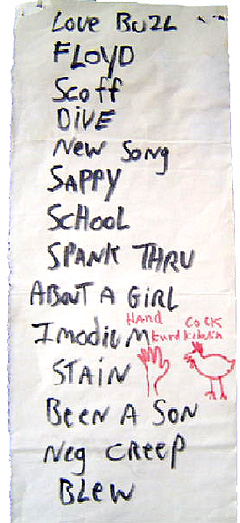 Love Buzz
FLOYD
Scoff
DIVE
New Song
SAPPY
SCHOOL
SPANK THRU
ABOUT A GIRL
HAND
COCK
Imodium
STAIN
BEEN A SON
Neg CREEP
BLEW